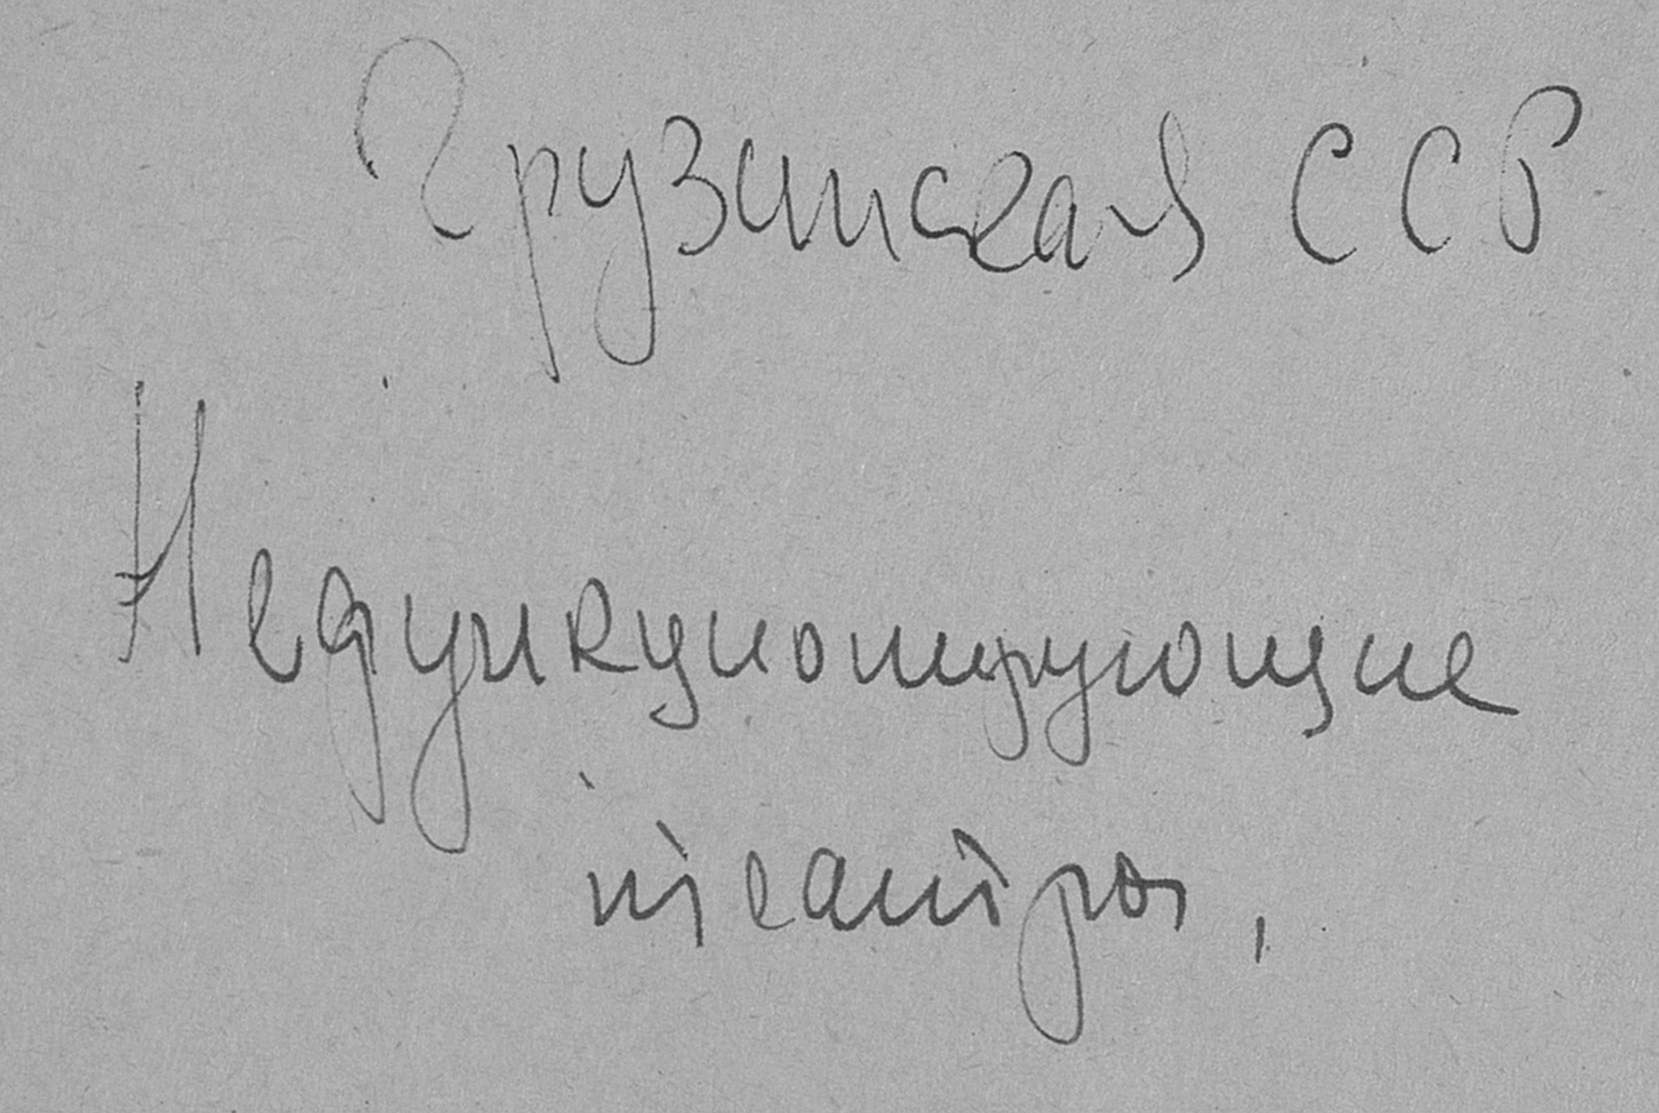 Грузинская ССР
Нефункционирующие
театры,